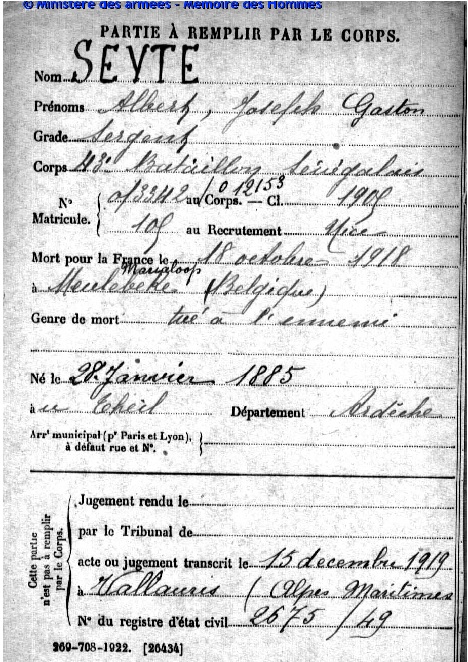 © Ministère des armées - Mémoire des Hommes
PARTIE À REMPLIR PAR LE CORPS.
Nom SEVTE
Prénoms Albert, Joseph Gaston
Grade Sergent
Corps 43e Bataillon Sénégalais
N° Matricule. { 013342 / 0 12153 au Corps. — Cl. 1905
105 au Recrutement Nice
Mort pour la France le 18 octobre 1918
Marialoop
à Meulebeke (Belgique)
Genre de mort tué à l'ennemi
Né le 28 Janvier 1885
à u Theil Département Ardèche
Arrt municipal (pr Paris et Lyon), à défaut rue et N°.
Cette partie n'est pas à remplir par le Corps.
Jugement rendu le
par le Tribunal de
acte ou jugement transcrit le 15 decembre 1919
à Vallauris (Alpes Maritimes
N° du registre d'état civil 2675/49
269-708-1922. [26434]